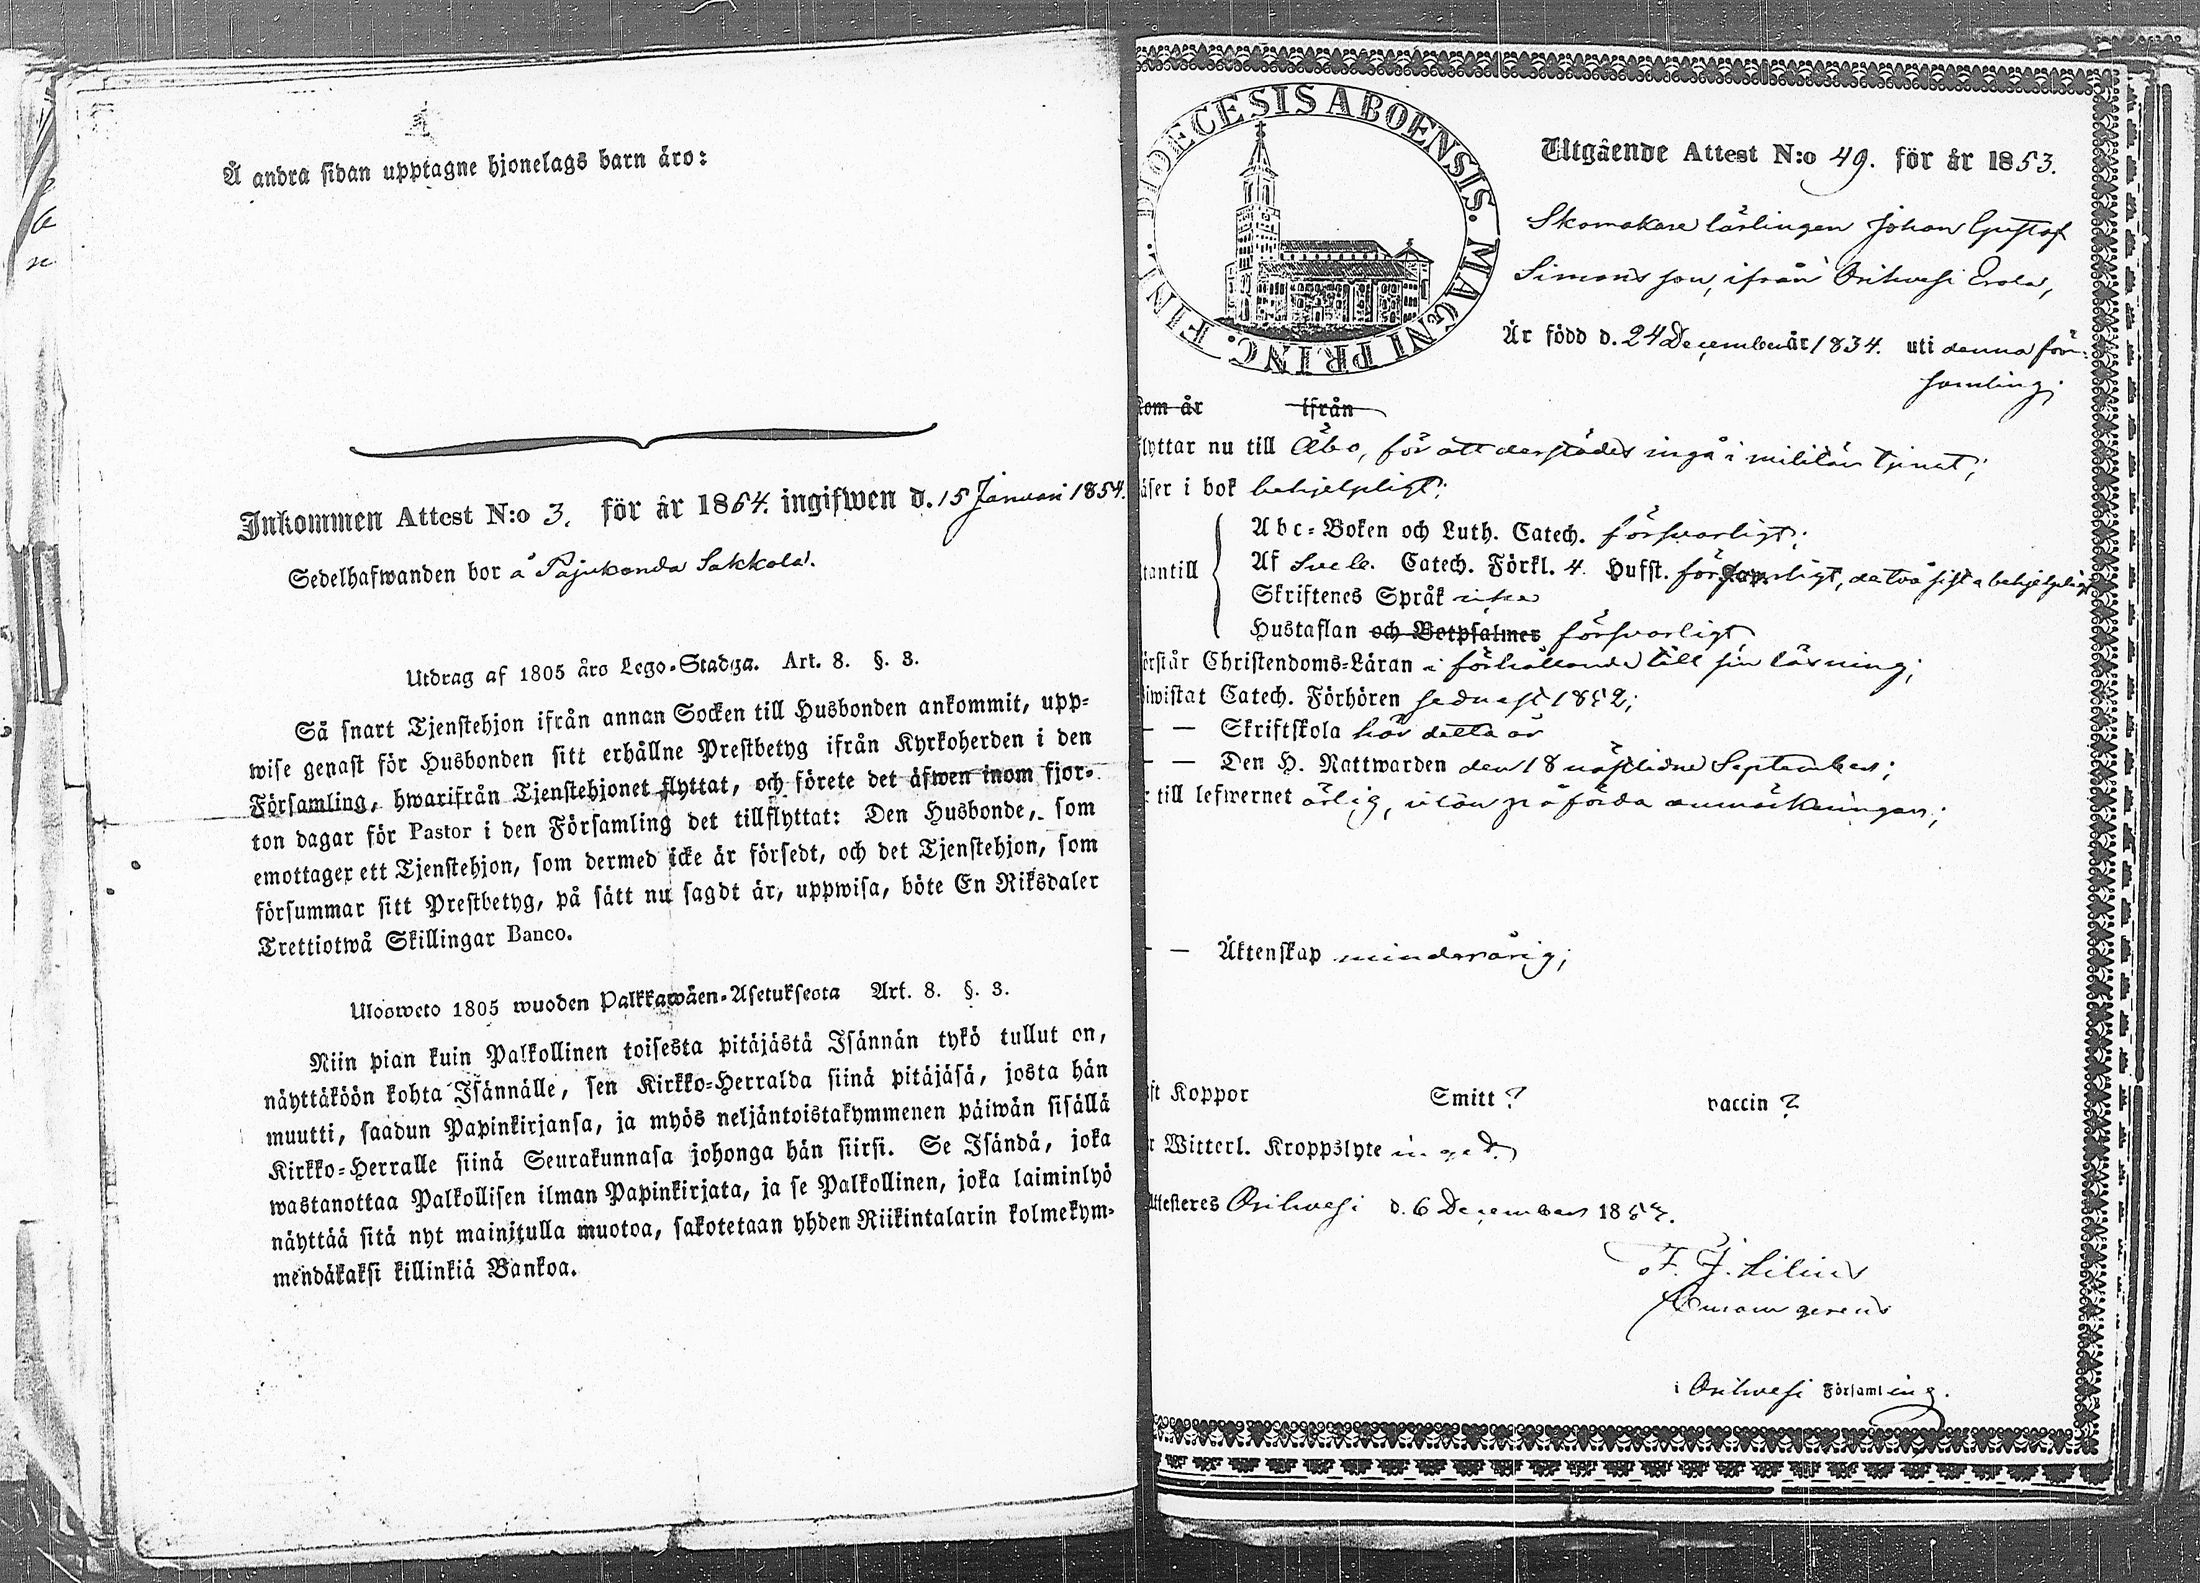 Å andra sidan upptagne hjonelags barn äro:
Inkommen Attest N:o 3. för år 1854. ingifwen d. 15 Januari 1854.
Sedelhafwanden bor å Pajukanda Sakkola.
Utdrag af 1805 års Lego-Stadga. Art. 8. §. 3.
Så snart Tjenstehjon ifrån annan Socken till Husbonden ankommit, upp-
wise genast för Husbonden sitt erhållne Prestbetyg ifrån Kyrkoherden i den
Församling, hwarifrån Tjenstehjonet flyttat, och förete det äfwen inom fjor-
ton dagar för Pastor i den Församling det tillflyttat: Den Husbonde, som
emottager ett Tjenstehjon, som dermed icke är försedt, och det Tjenstehjon, som
försummar sitt Prestbetyg, på sätt nu sagdt är, uppwisa, böte En Riksdaler
Trettiotwå Skillingar Banco.
Ulosweto 1805 wuoden Palkkawäen-Asetuksesta Art. 8. §. 3.
Niin pian kuin Palkollinen toisesta pitäjästä Isännän tykö tullut on,
näyttäköön kohta Isännälle, sen Kirkko-Herralda siinä pitäjäsä, josta hän
muutti, saadun Papinkirjansa, ja myös neljäntoistakymmenen päiwän sisällä
Kirkko-Herralle siinä Seurakunnasa johonga hän siirsi. Se Isändä, joka
wastanottaa Palkollisen ilman Papinkirjata, ja se Palkollinen, joka laiminlyö
näyttää sitä nyt mainitulla muotoa, sakotetaan yhden Riikintalarin kolmekym-
mendäkaksi killinkiä Bankoa.
DIOECESIS ABOENSIS. MAGNI PRINC. FINL.
Utgående Attest N:o 49. för år 1853.
Skomakare lärlingen Johan Gustaf
Simons son, ifrån Orihvesi Erola,
Är född d. 24 December år 1834. uti denna för-
samling;
kom år ifrån
flyttar nu till Åbo, för att derstädes ingå i militär tjenst;
läser i bok behjelpligt;
Abc-Boken och Luth. Catech. försvarligt;
utantill Af Sveb. Catech. Förkl. 4 Hufst. försvarligt, de två sista behjelpligt
Skriftenes Språk icke
Hustaflan och Botpsalmer försvarligt
förstår Christendoms-Läran i förhållande till sin läsning;
biwistat Catech. Förhören sednast 1852;
— — Skriftskola här detta år
— — Den H. Nattwarden den 18 nästlidne September;
är till lefwernet ärlig, utan påförda anmärkningar;
— — Äktenskap minderårig;
haft Koppor Smitt ? vaccin ?
är Witterl. Kroppslyte inged.
Attesteres Orihvesi d. 6 December 1853.
F. J. Lilius
i Orihvesi Församling.